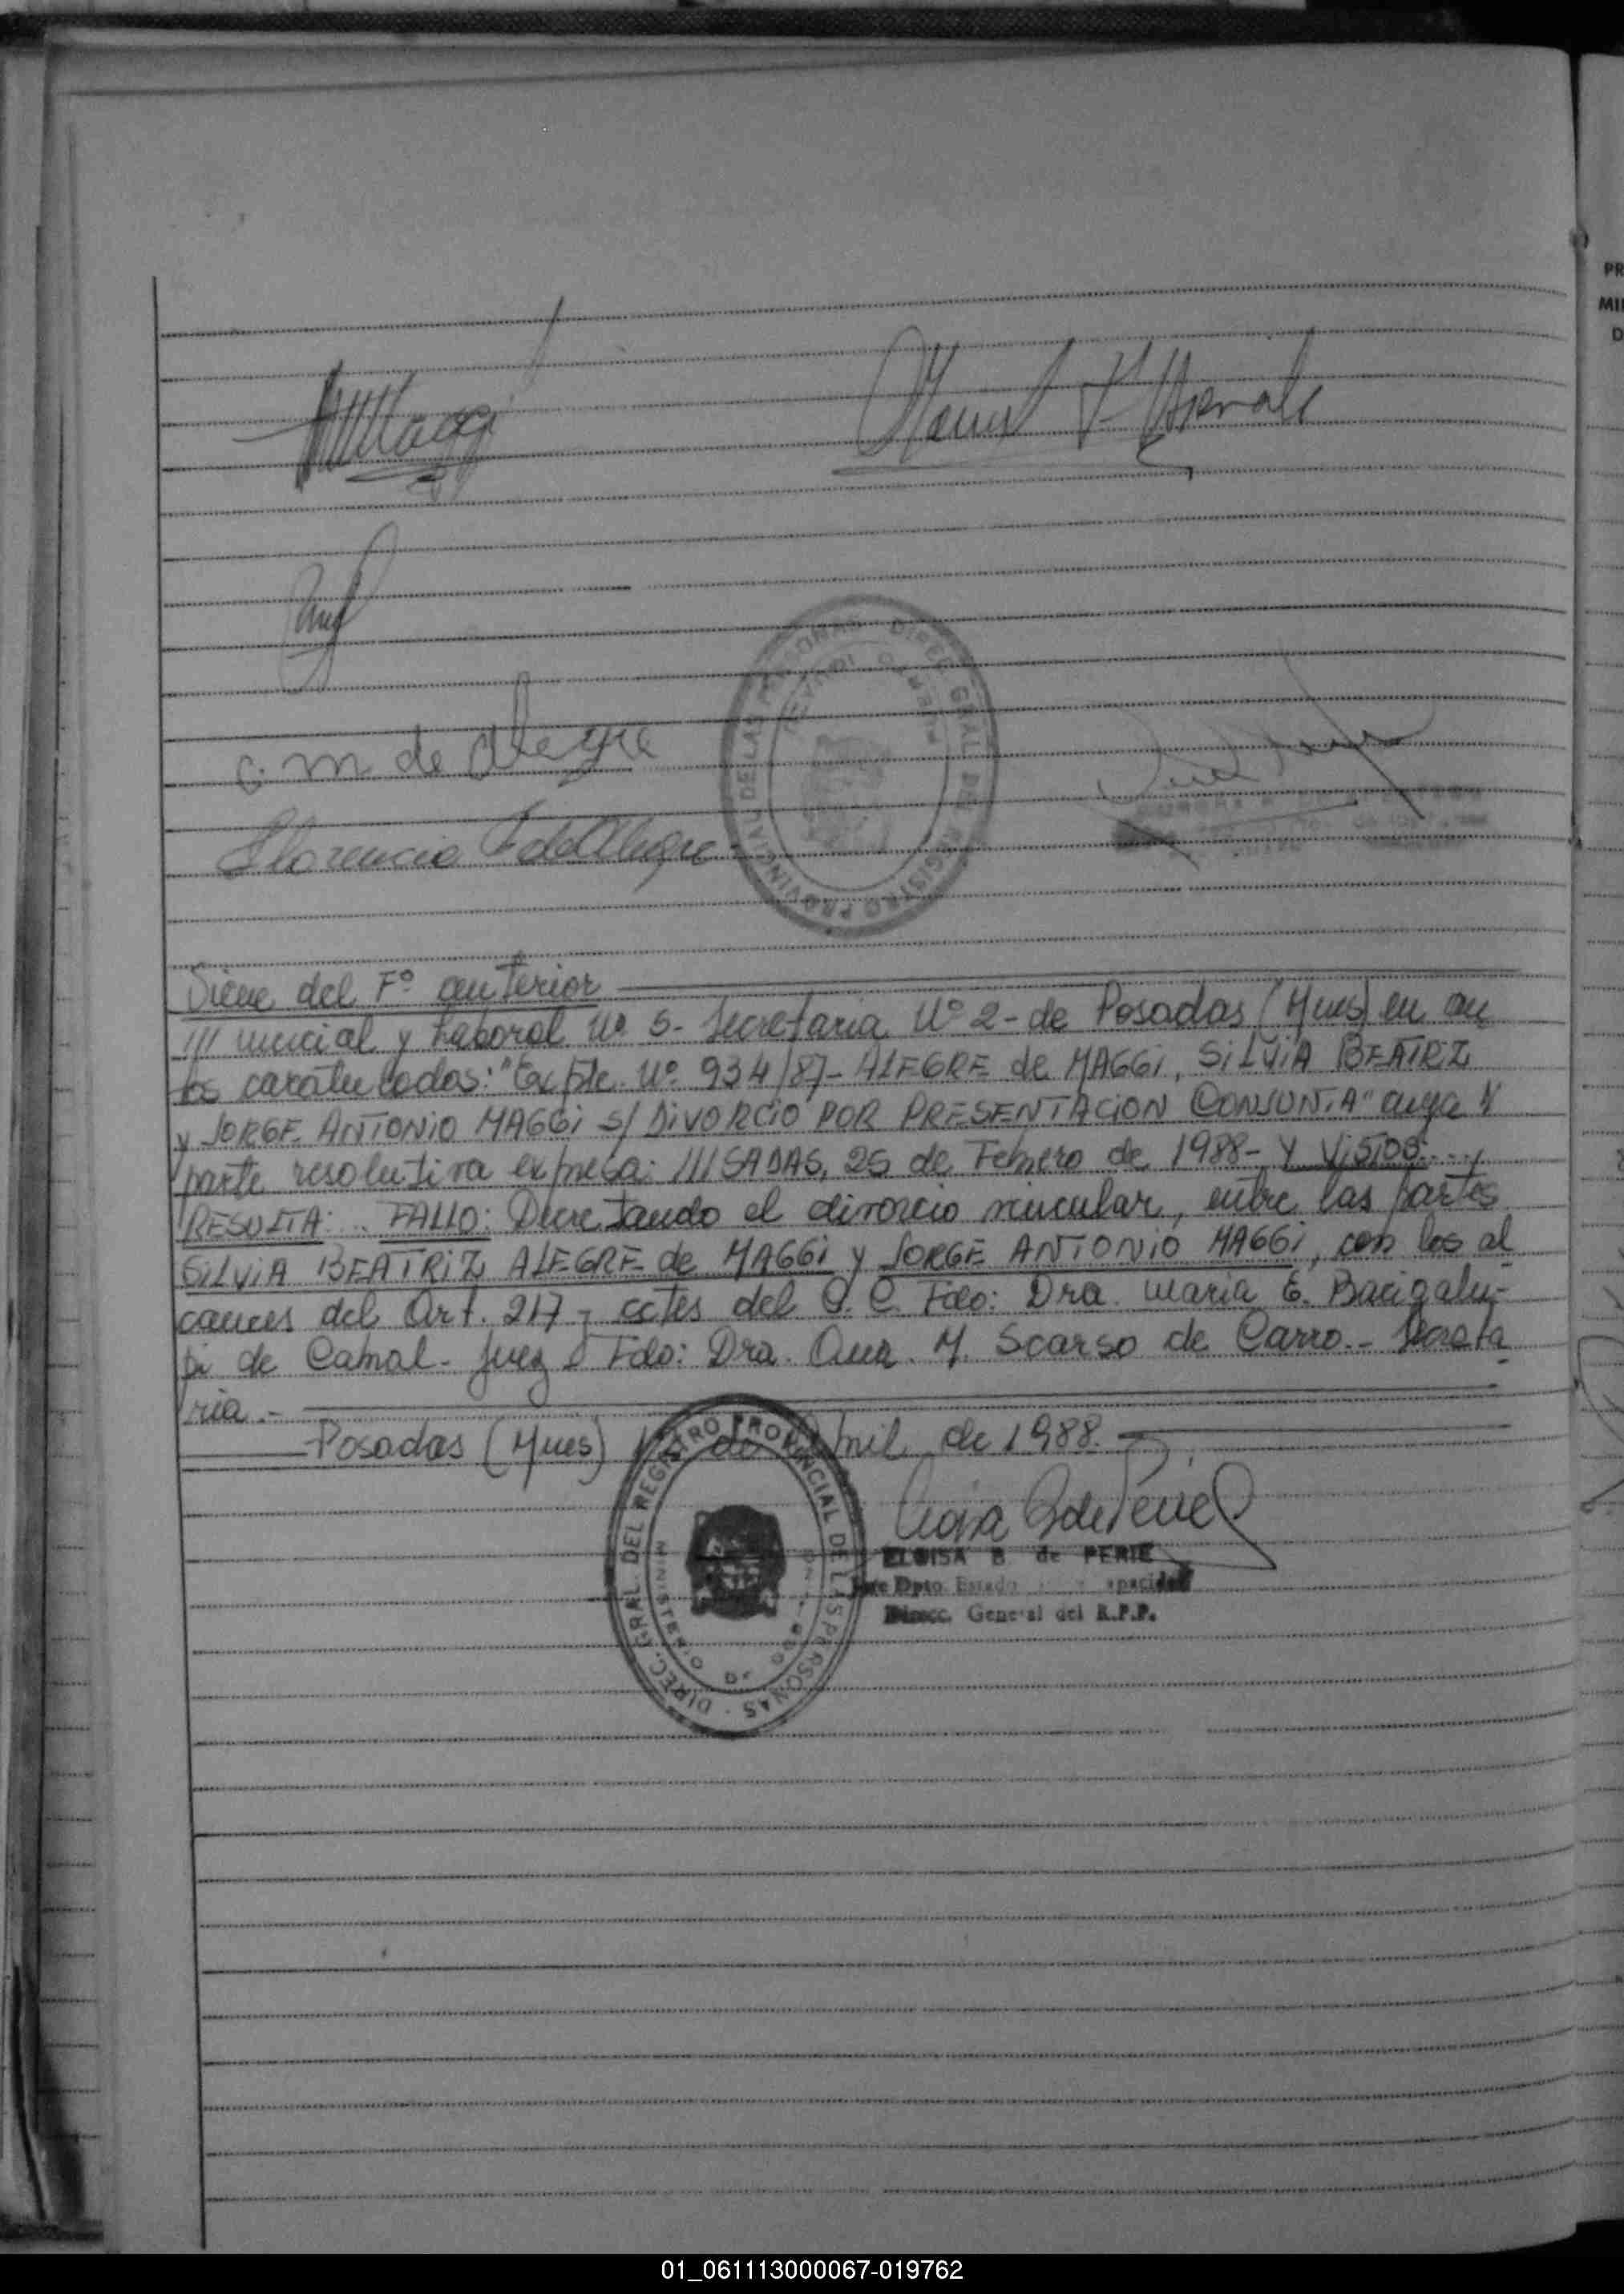 Maggi
c. m. de Alegre
Florencia F de Alegre
Viene del Fº anterior
/// mercial y Laboral Nº 5- Secretaria Nº 2- de Posadas (Mnes) en au
tos caratulados: "Expte. Nº 934/87- ALEGRE de MAGGi, SiLViA BEATRIZ
y JORGE ANTONIO MAGGi S/ DiVORCiO POR PRESENTACION CONJUNTA" cuya
parte resolutiva expresa: ///SADAS, 25 de Febrero de 1988- Y ViSTOS:...,
RESULTA: .. FALLO: Decretando el divorcio vincular, entre las partes
SiLViA BEATRiZ ALEGRE de MAGGi y JORGE ANTONIO MAGGi, con los al
cances del Art. 217 y cctes del C. C. Fdo: Dra. Maria E. Bacigalu-
pi de Cabral- Juez Fdo: Dra. Ana. M. Scarso de Carro.- Secreta
ria.-
Posadas (Mnes) de Abril de 1988.
ELOISA B. de PERIE
Jefe Dpto. Estado Capacidad
Direcc. General del R.P.P.
DIREC. GRAL. DEL REGISTRO PROVINCIAL DE LAS PERSONAS
MINISTERIO DE GOBIERNO
DIREC. GRAL. DEL REGISTRO PROVINCIAL DE LAS PERSONAS
PR
MI
D
01_061113000067-019762